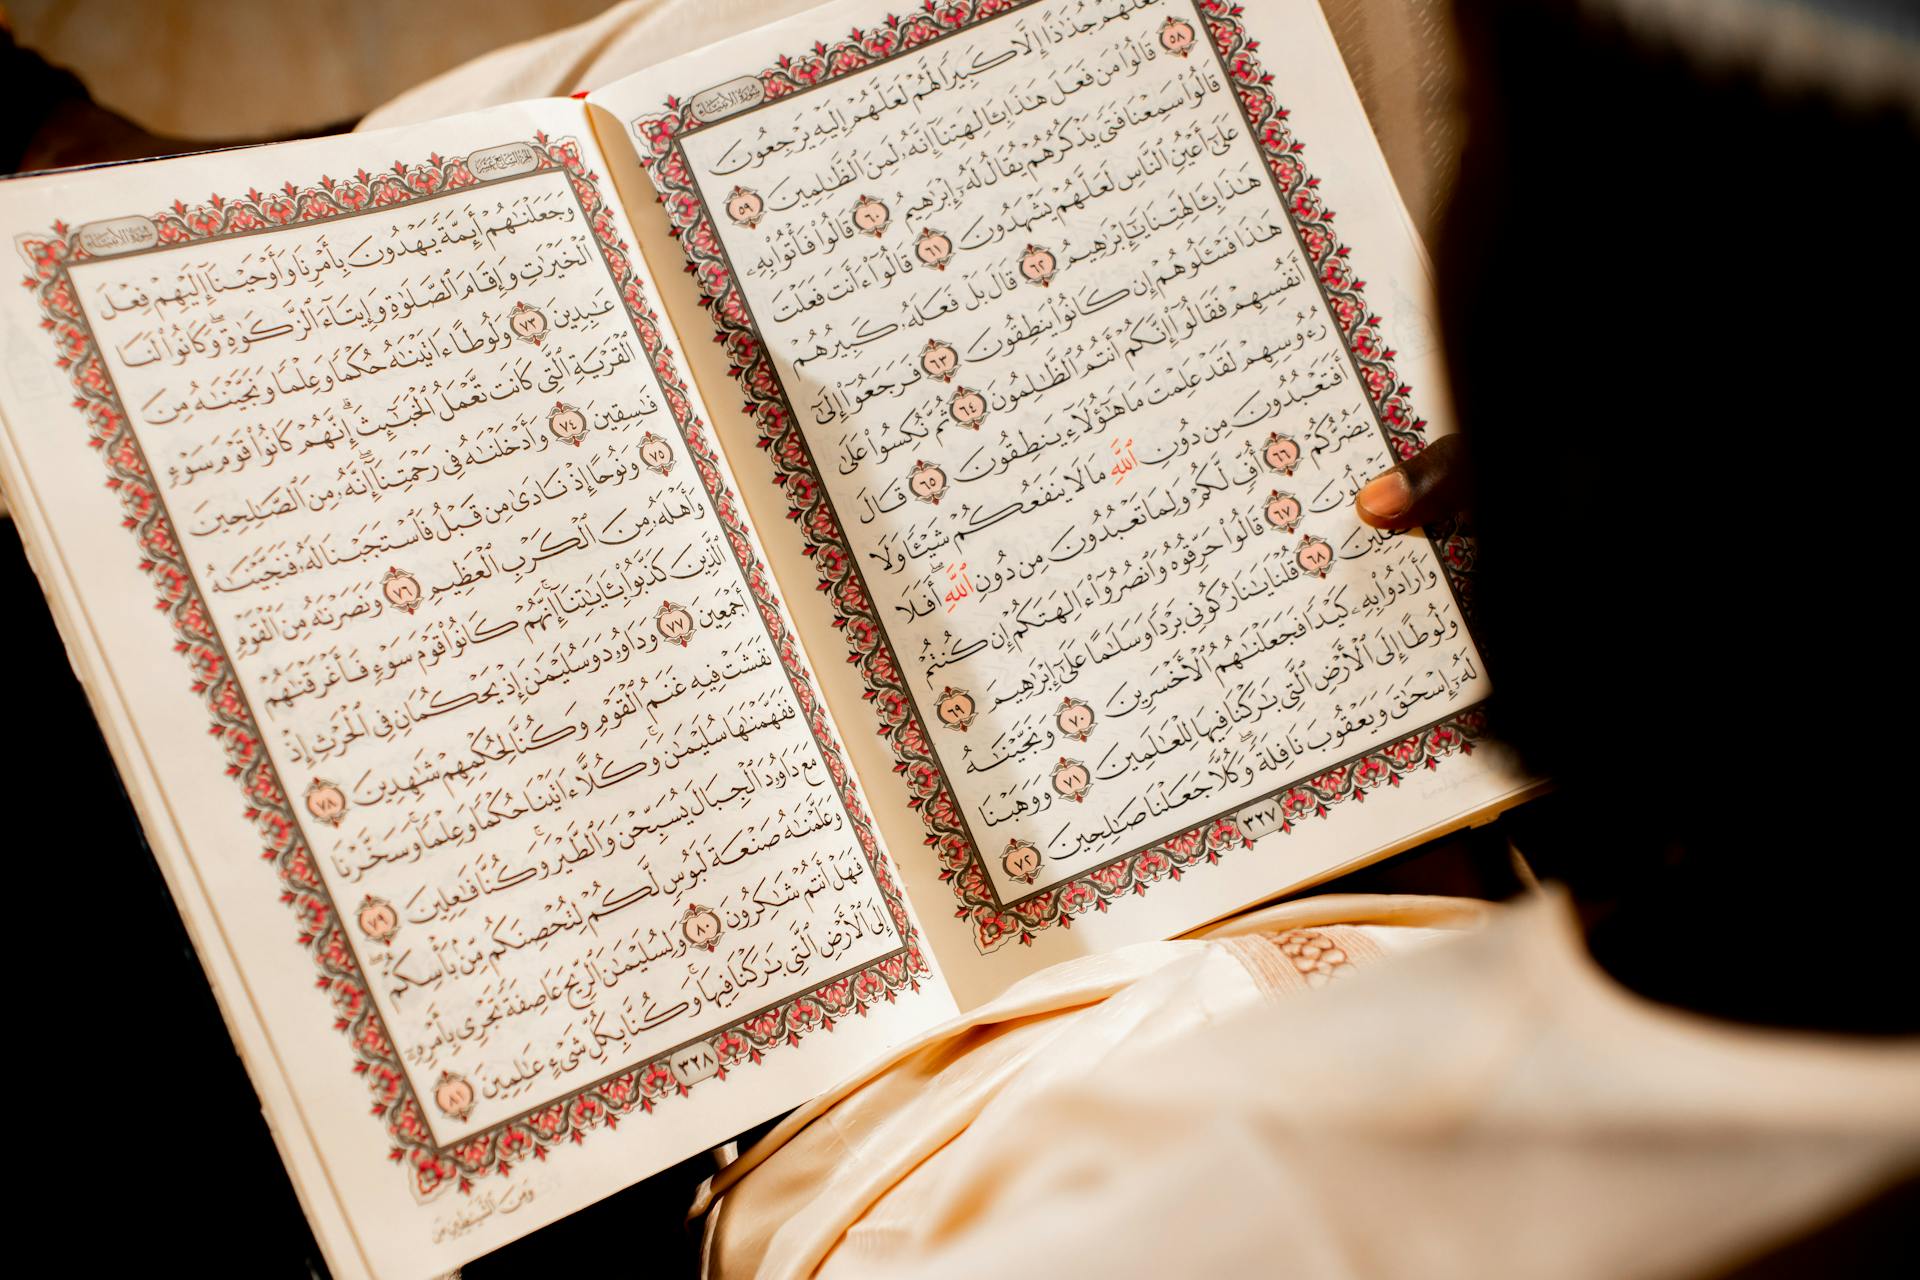 سُورَةُ الأَنبِيَاء
جُذَٰذًا إِلَّا كَبِيرًا لَّهُمْ لَعَلَّهُمْ إِلَيْهِ يَرْجِعُونَ
٥٨ قَالُوا۟ مَن فَعَلَ هَٰذَا بِـَٔالِهَتِنَآ إِنَّهُۥ لَمِنَ ٱلظَّٰلِمِينَ ٥٩
قَالُوا۟ سَمِعْنَا فَتًى يَذْكُرُهُمْ يُقَالُ لَهُۥٓ إِبْرَٰهِيمُ ٦٠ قَالُوا۟ فَأْتُوا۟ بِهِۦ
عَلَىٰٓ أَعْيُنِ ٱلنَّاسِ لَعَلَّهُمْ يَشْهَدُونَ ٦١ قَالُوٓا۟ ءَأَنتَ فَعَلْتَ
هَٰذَا بِـَٔالِهَتِنَا يَٰٓإِبْرَٰهِيمُ ٦٢ قَالَ بَلْ فَعَلَهُۥ كَبِيرُهُمْ
هَٰذَا فَسْـَٔلُوهُمْ إِن كَانُوا۟ يَنطِقُونَ ٦٣ فَرَجَعُوٓا۟ إِلَىٰٓ
أَنفُسِهِمْ فَقَالُوٓا۟ إِنَّكُمْ أَنتُمُ ٱلظَّٰلِمُونَ ٦٤ ثُمَّ نُكِسُوا۟ عَلَىٰ
رُءُوسِهِمْ لَقَدْ عَلِمْتَ مَا هَٰٓؤُلَآءِ يَنطِقُونَ ٦٥ قَالَ
أَفَتَعْبُدُونَ مِن دُونِ ٱللَّهِ مَا لَا يَنفَعُكُمْ شَيْـًٔا وَلَا
يَضُرُّكُمْ ٦٦ أُفٍّ لَّكُمْ وَلِمَا تَعْبُدُونَ مِن دُونِ ٱللَّهِ ۖ أَفَلَا
تَعْقِلُونَ ٦٧ قَالُوا۟ حَرِّقُوهُ وَٱنصُرُوٓا۟ ءَالِهَتَكُمْ إِن كُنتُمْ
٦٨ قُلْنَا يَٰنَارُ كُونِى بَرْدًا وَسَلَٰمًا عَلَىٰٓ إِبْرَٰهِيمَ ٦٩
وَأَرَادُوا۟ بِهِۦ كَيْدًا فَجَعَلْنَٰهُمُ ٱلْأَخْسَرِينَ ٧٠ وَنَجَّيْنَٰهُ
وَلُوطًا إِلَى ٱلْأَرْضِ ٱلَّتِى بَٰرَكْنَا فِيهَا لِلْعَٰلَمِينَ ٧١ وَوَهَبْنَا
لَهُۥٓ إِسْحَٰقَ وَيَعْقُوبَ نَافِلَةً ۖ وَكُلًّا جَعَلْنَا صَٰلِحِينَ ٧٢
٣٢٧
الجُزْءُ السَّابِعَ عَشَرَ
سُورَةُ الأَنبِيَاء
وَجَعَلْنَٰهُمْ أَئِمَّةً يَهْدُونَ بِأَمْرِنَا وَأَوْحَيْنَآ إِلَيْهِمْ فِعْلَ
ٱلْخَيْرَٰتِ وَإِقَامَ ٱلصَّلَوٰةِ وَإِيتَآءَ ٱلزَّكَوٰةِ ۖ وَكَانُوا۟ لَنَا
عَٰبِدِينَ ٧٣ وَلُوطًا ءَاتَيْنَٰهُ حُكْمًا وَعِلْمًا وَنَجَّيْنَٰهُ مِنَ
ٱلْقَرْيَةِ ٱلَّتِى كَانَت تَّعْمَلُ ٱلْخَبَٰٓئِثَ ۗ إِنَّهُمْ كَانُوا۟ قَوْمَ سَوْءٍ
فَٰسِقِينَ ٧٤ وَأَدْخَلْنَٰهُ فِى رَحْمَتِنَآ ۖ إِنَّهُۥ مِنَ ٱلصَّٰلِحِينَ
٧٥ وَنُوحًا إِذْ نَادَىٰ مِن قَبْلُ فَٱسْتَجَبْنَا لَهُۥ فَنَجَّيْنَٰهُ
وَأَهْلَهُۥ مِنَ ٱلْكَرْبِ ٱلْعَظِيمِ ٧٦ وَنَصَرْنَٰهُ مِنَ ٱلْقَوْمِ
ٱلَّذِينَ كَذَّبُوا۟ بِـَٔايَٰتِنَآ ۚ إِنَّهُمْ كَانُوا۟ قَوْمَ سَوْءٍ فَأَغْرَقْنَٰهُمْ
أَجْمَعِينَ ٧٧ وَدَاوُۥدَ وَسُلَيْمَٰنَ إِذْ يَحْكُمَانِ فِى ٱلْحَرْثِ إِذْ
نَفَشَتْ فِيهِ غَنَمُ ٱلْقَوْمِ وَكُنَّا لِحُكْمِهِمْ شَٰهِدِينَ ٧٨
فَفَهَّمْنَٰهَا سُلَيْمَٰنَ ۚ وَكُلًّا ءَاتَيْنَا حُكْمًا وَعِلْمًا ۚ وَسَخَّرْنَا
مَعَ دَاوُۥدَ ٱلْجِبَالَ يُسَبِّحْنَ وَٱلطَّيْرَ ۚ وَكُنَّا فَٰعِلِينَ ٧٩
وَعَلَّمْنَٰهُ صَنْعَةَ لَبُوسٍ لَّكُمْ لِتُحْصِنَكُم مِّنۢ بَأْسِكُمْ ۖ
فَهَلْ أَنتُمْ شَٰكِرُونَ ٨٠ وَلِسُلَيْمَٰنَ ٱلرِّيحَ عَاصِفَةً تَجْرِى بِأَمْرِهِۦٓ
إِلَى ٱلْأَرْضِ ٱلَّتِى بَٰرَكْنَا فِيهَا ۚ وَكُنَّا بِكُلِّ شَىْءٍ عَٰلِمِينَ ٨١
٣٢٨
وَمِنَ ٱلشَّيَٰطِينِ مَن